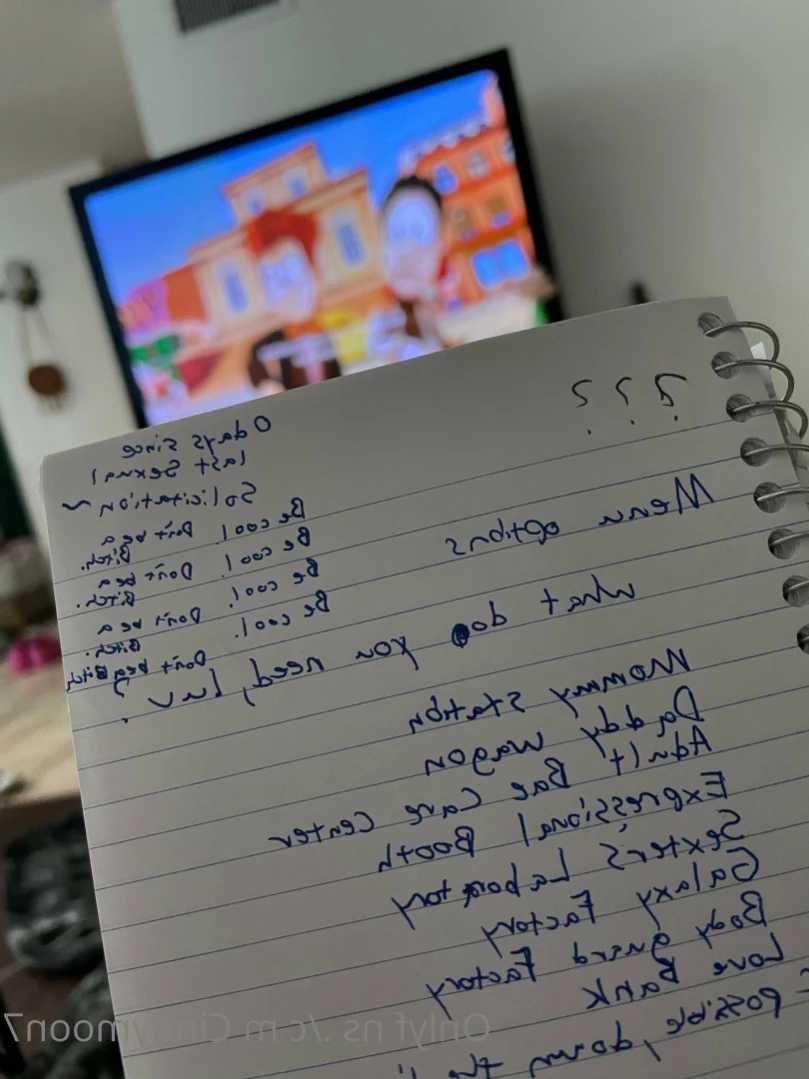 ? ? ?
0 days since
last sexual
Solicitation ~
Be cool. Don't be a
Bitch.
Be cool. Don't be a
Bitch.
Be cool. Don't be a
Bitch.
Be cool.
Don't be a Bitch
Menu options
what do you need, luv?
Mommy station
Daddy wagon
Adult Bae Care Center
Expressional Booth
Sexter's Laboratory
Galaxy Factory
Body guard Factory
Love Bank
possible, down the
Onlyf ns ./c m Cindymoon7